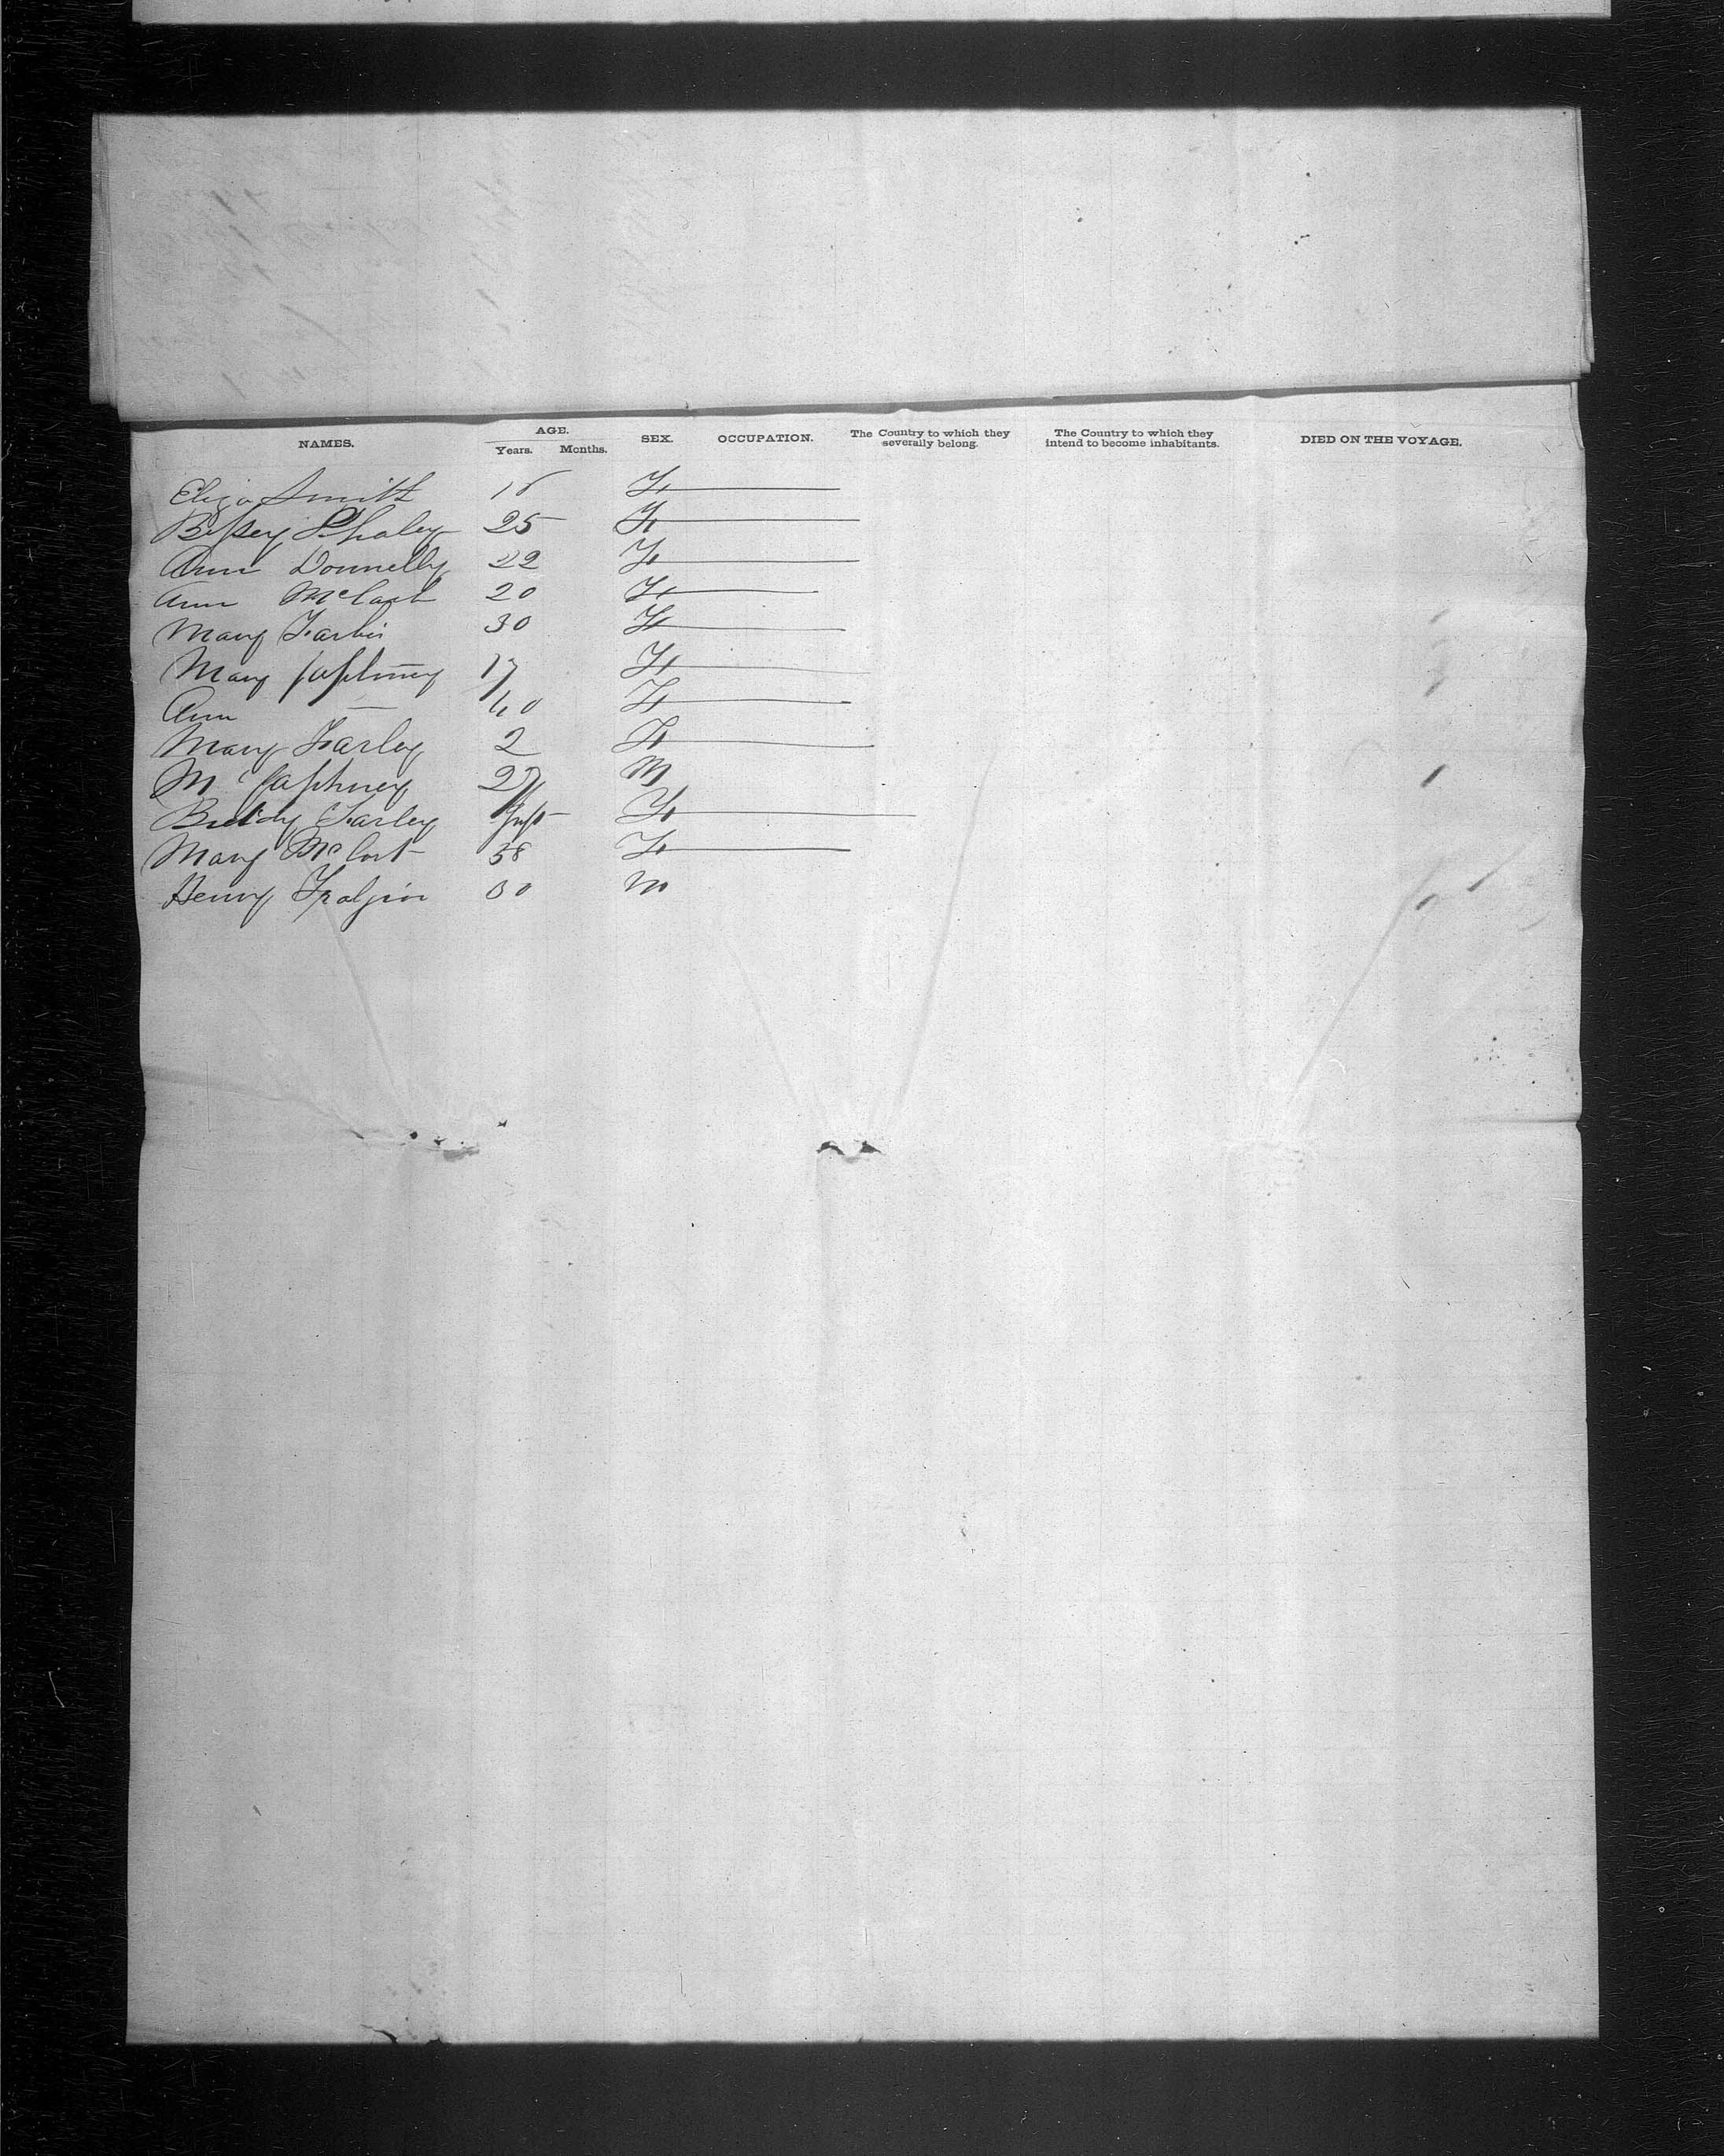 NAMES. AGE. Years. Months. SEX. OCCUPATION. The Country to which they severally belong. The Country to which they intend to become inhabitants. DIED ON THE VOYAGE.
Eliza Smith F
Bessey 25 F
Ann Donnelly 22 F
Ann 20 F
Mary 30 F
Mary 17 F
Ann — 40 F
Mary Farley 2 F
27 M
Farley Inft F
Mary McCort 38 F
Henry 30 M